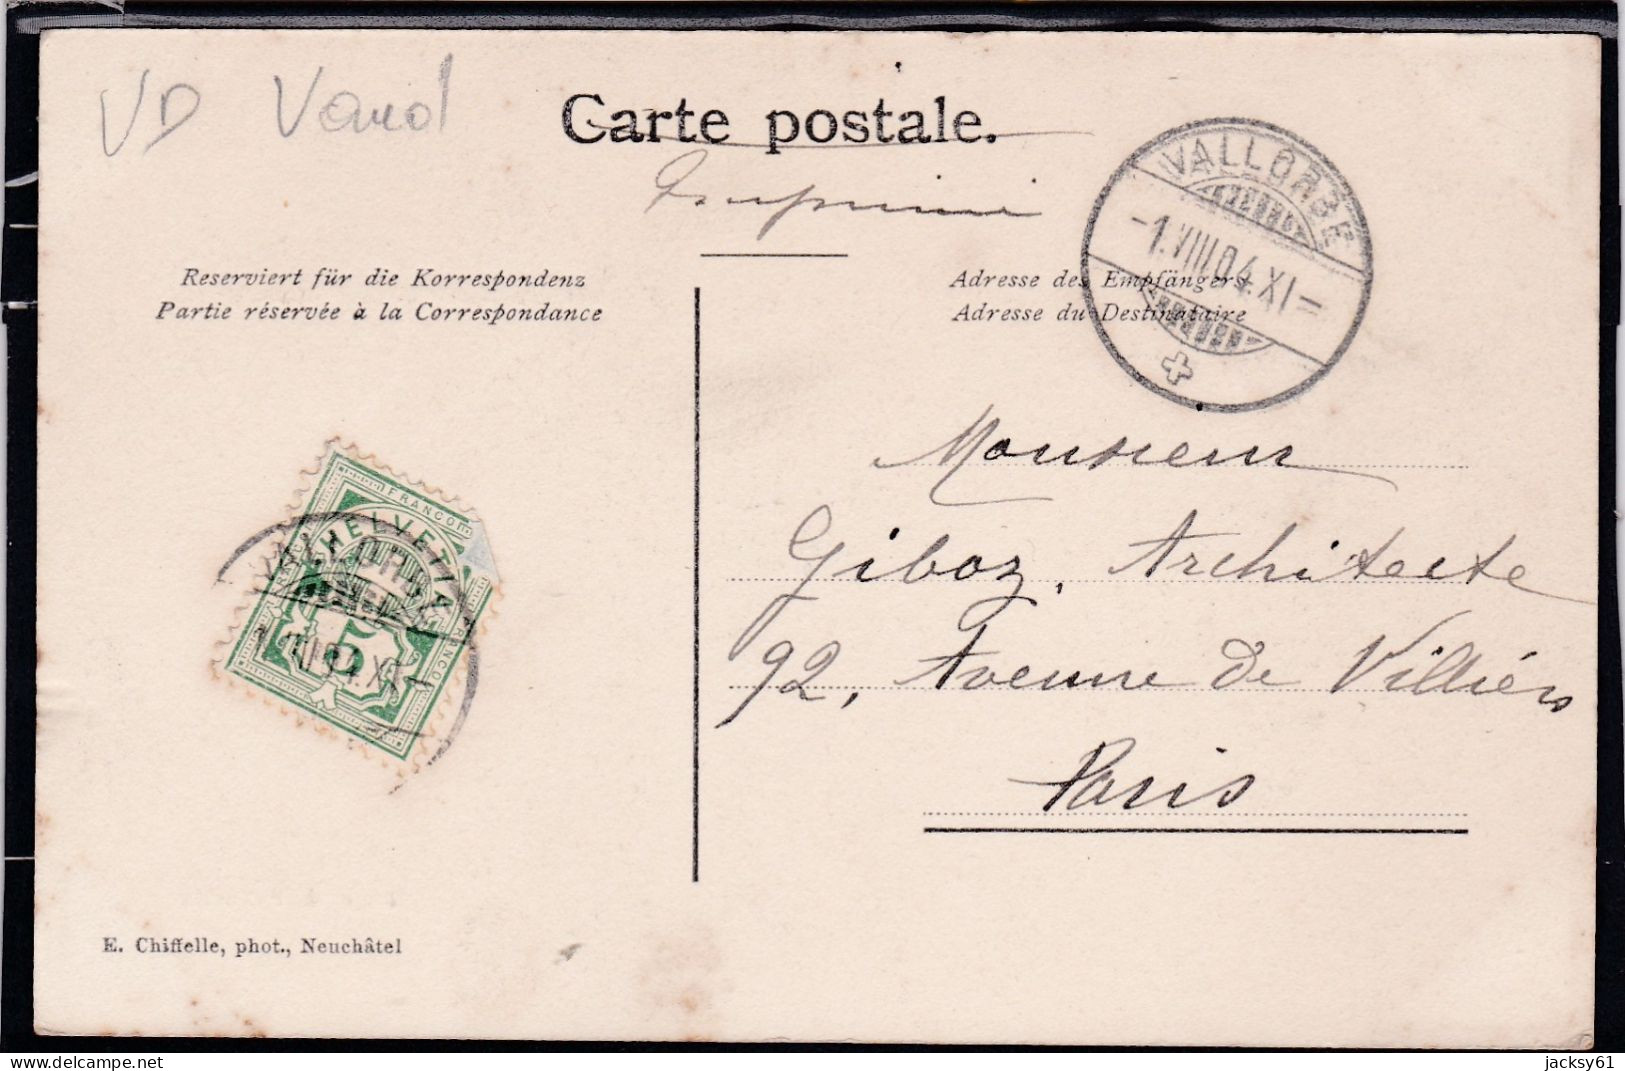 VD Vaud
Carte postale.
Imprimé
Reserviert für die Korrespondenz
Partie réservée à la Correspondance
Adresse des Empfängers
Adresse du Destinataire
VALLORBE
-1.VIII.04.XI-
FRANCO
HELVETIA
FRANCO
FRANCO
5
VALLORBE
Monsieur
Giboz, Architecte
92, Avenue de Villiers
Paris
E. Chiffelle, phot., Neuchâtel
jacksy61